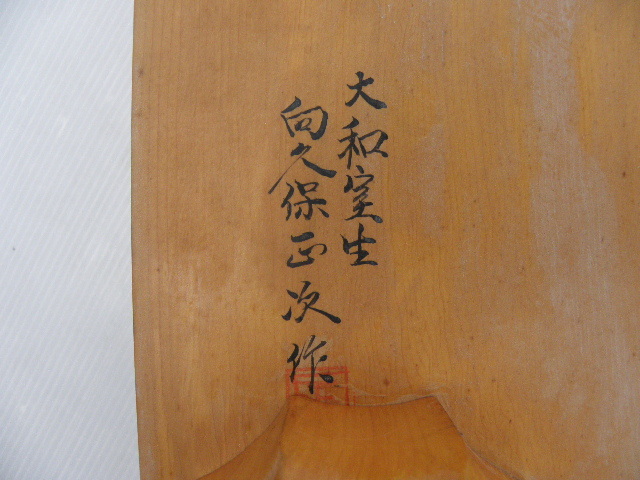 大和室生
向久保正次作